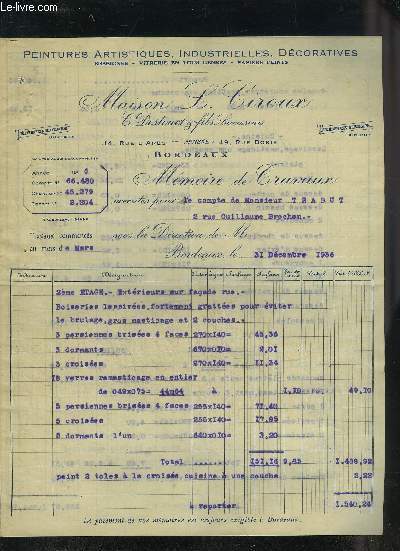 Le-Livre.com
PEINTURES ARTISTIQUES, INDUSTRIELLES, DÉCORATIVES
ENSEIGNES - VITRERIE EN TOUS GENRES - PAPIERS PEINTS
Maison L. Ciroux
& fils Successeurs
14, RUE L'APES - ANNEXE - 19, RUE DORIS
BORDEAUX
Mémoire de Travaux
66.480
45.279
exécutés pour le compte de Monsieur T R A B U T
2 rue Guillaume Brochon.-
Travaux commencés sous la Direction de M
au mois de Mars
Bordeaux, le 31 Décembre 1936
Désignation Surface
2ème ETAGE.- Extérieurs sur façade rue.-
Boiseries lessivées, fortement grattées pour éviter
le brulage, gros masticage et 2 couches.-
3 persiennes brisées 4 faces 270x140= 45,36
3 dormants 670x010= 2,01
3 croisées 270x140= 11,34
18 verres remasticage en entier
de 049x075= 44m64 à 1,10 49,10
5 persiennes brisées 4 faces 255x140= 71,40
5 croisées 255x140= 17,85
5 dormants l'un 640x010= 3,20
Total ...... 151,16 9,85 1.488,92
peint 2 toles à la croisée cuisine à une couche 2,22
à reporter 1.540,24
Le paiement de nos mémoires est toujours exigible à Bordeaux.